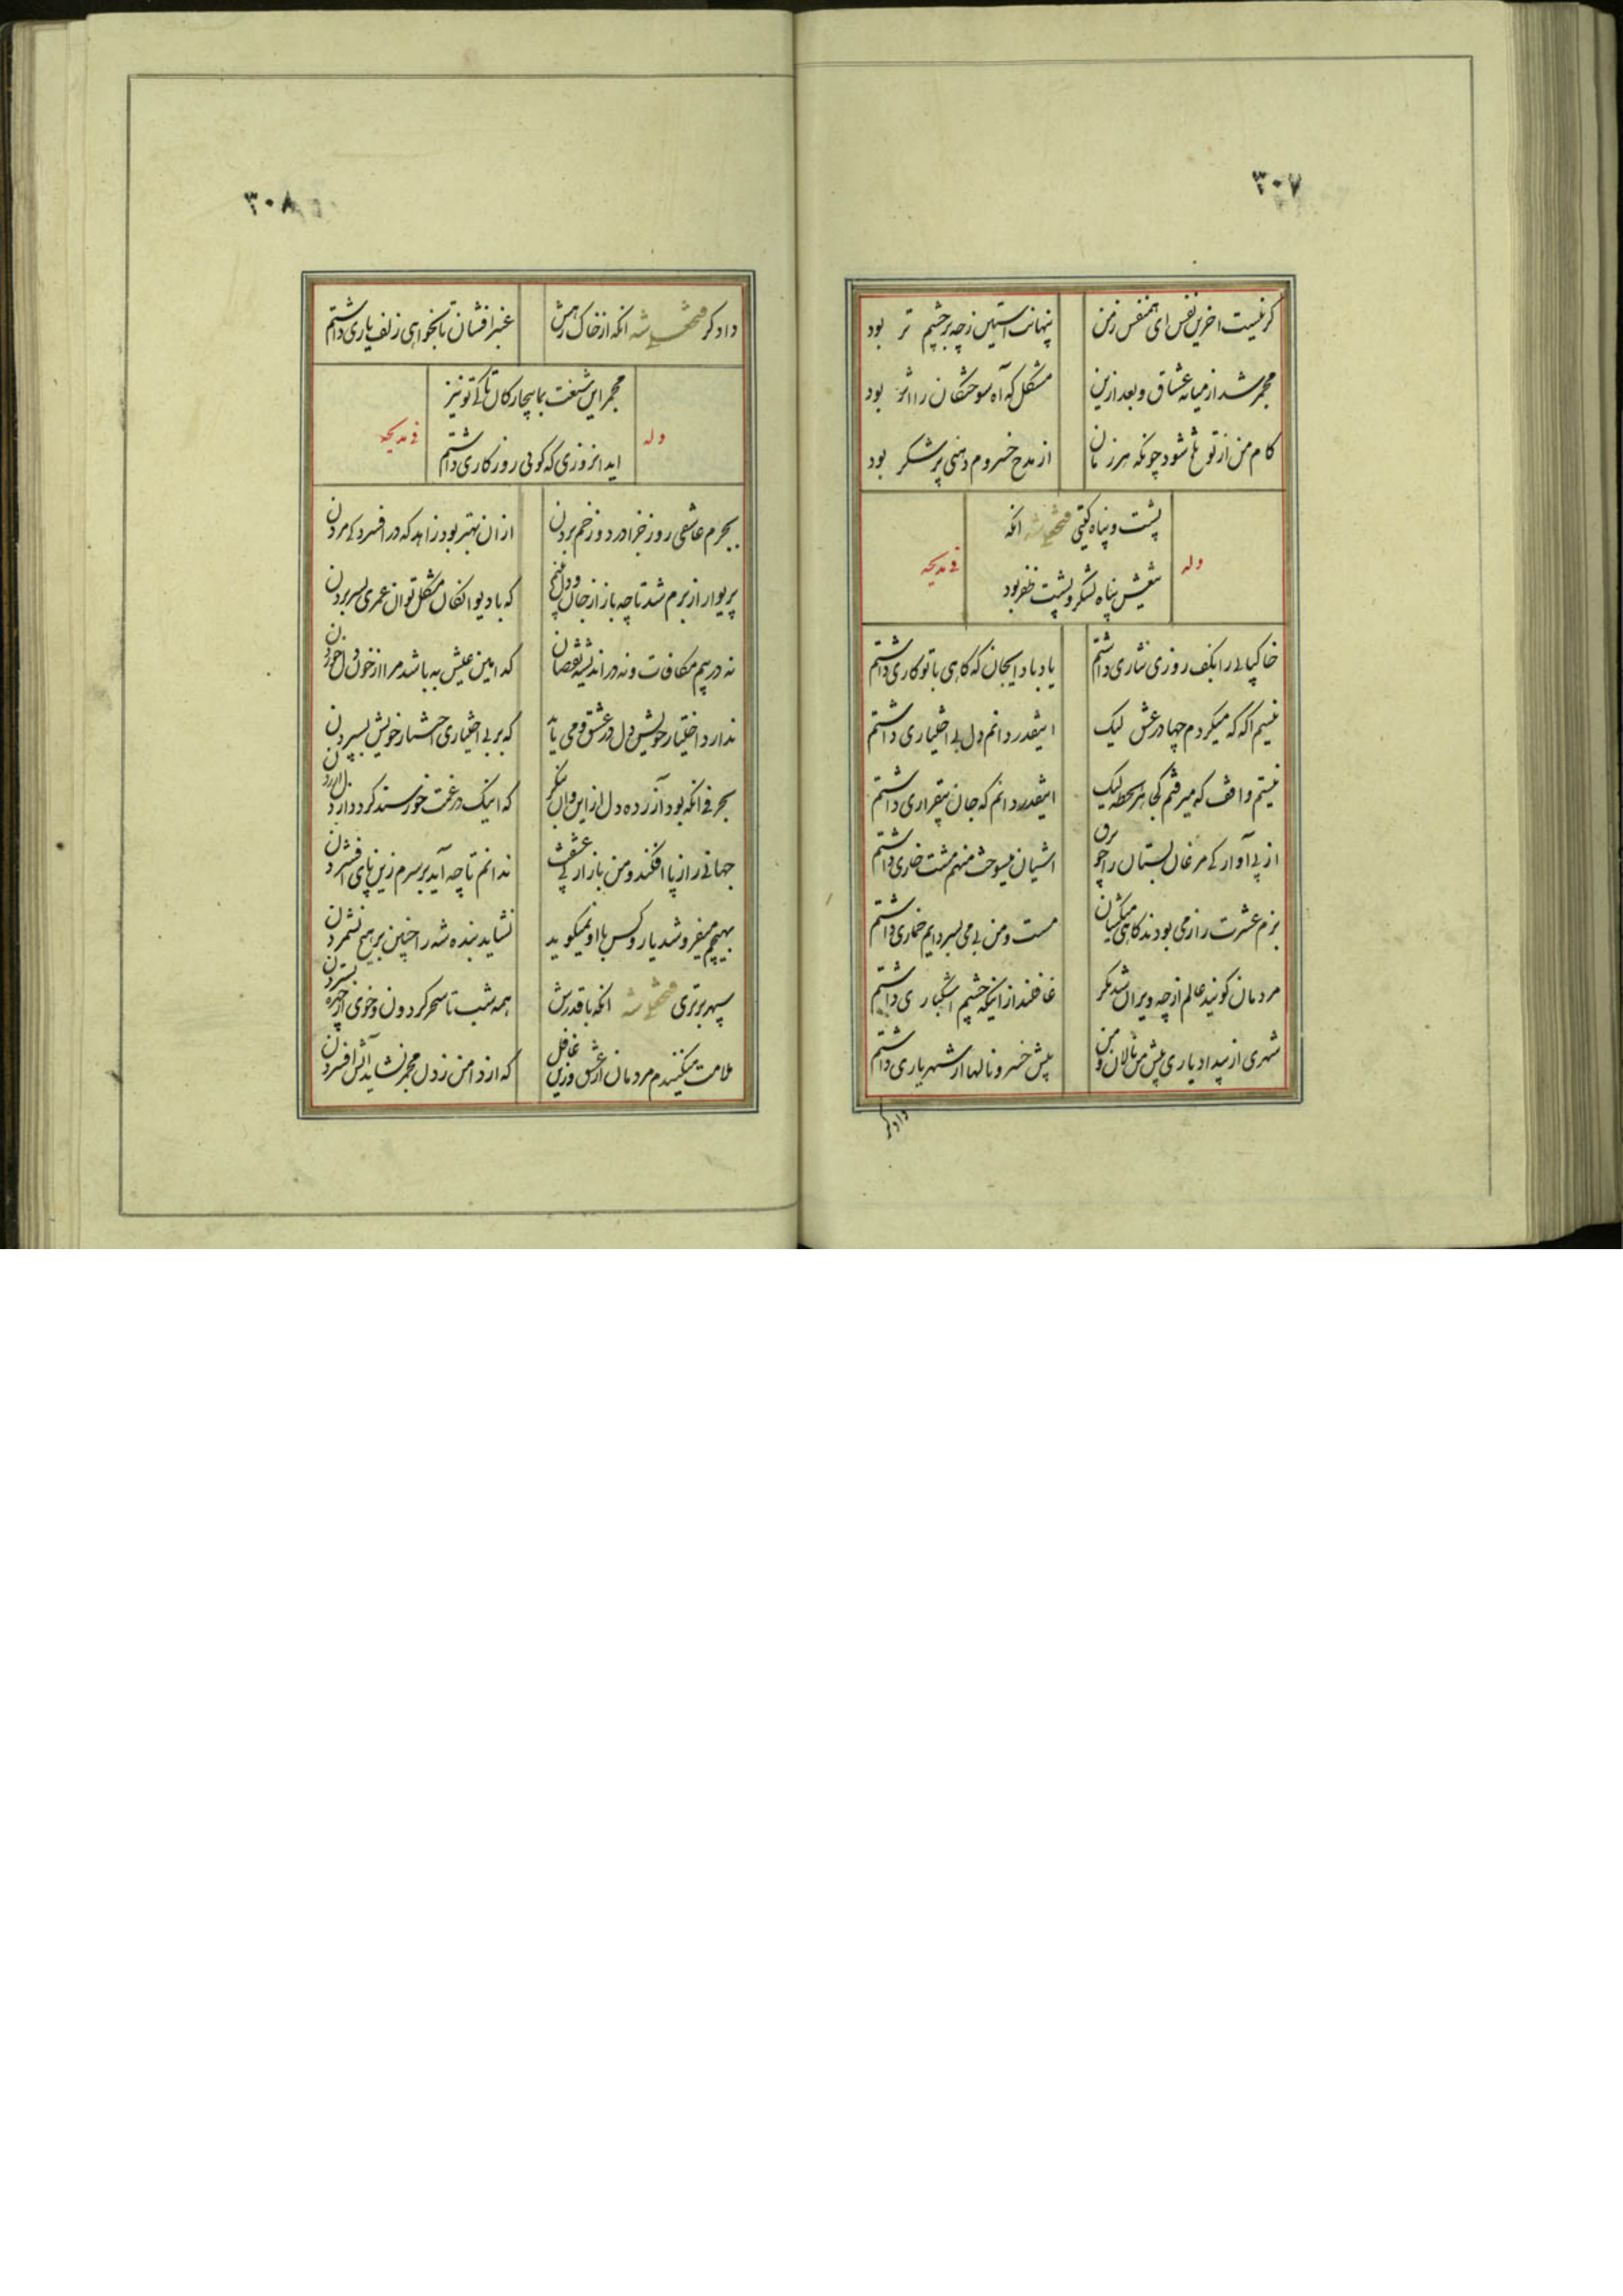 ۳۰۷
گر نیست آخرین نفس ای همنفس ز من پنهانت آستین ز چه بر چشم تر بود
مجمر شد از میانه عشاق و بعد ازین مشکل که آه سوختگان را اثر بود
کام من از تو تلخ شود چونکه هر زمان از مدح خسروم دهنی پر شکر بود
پشت و پناه گیتی فتحعلی شه آنکه
وله فی مدیحه
تیغش پناه لشکر و پشت ظفر بود
خاکپایی را بکف روزی نثاری داشتم یاد باد ایجان که گاهی با تو کاری داشتم
نیستم آگه که میکردم چها در عشق لیک اینقدر دانم دل بی اختیاری داشتم
نیستم واقف که میرفتم کجا هر لحظه لیک اینقدر دانم که جان بیقراری داشتم
از پی آوارگی مرغان بستان را چو برق آشیان میسوخت منهم مشت خاری داشتم
بزم عشرت را ز می بودند گاهی میکشان مست و من بی می بسر دایم خماری داشتم
مردمان گویند عالم از چه ویران شد مگر غافلند از اینکه چشم اشکباری داشتم
شهری از بیداد یاری پیش من نالان و من پیش خسرو نالها از شهریاری داشتم
دادگر
۳۰۸
دادگر فتحعلی شه آنکه از خاک رهش عنبر افشان تا بخواهی زلف یاری داشتم
مجمر این شنعت بما بیچارگان تا کی تو نیز
وله فی مدیحه
اید انروزی که گویی روزگاری داشتم
بجرم عاشقی روز جزا در دوزخم بردن از ان بهتر بود زاهد که در افسردگی مردن
پریوار از برم شد تا چه باز از جان و دل که با دیوانگان مشکل توان عمری بسر بردن
نه در بیم مکافات و نه در اندیشه نقصان کدامین عیش به باشد مرا از خون دل خوردن
ندارد اختیار خویش دل در عشق و می باید که بر بی اختیاری اختیار خویش بسپردن
بحرفی انکه بود آزرده دل از این و آن بنگر که اینک در غمت خورسند گردد از دل ازردن
جهانی را ز پا افکند و من باز از پی عشقت ندانم تا چه آید بر سرم زین پای افشردن
بهیچم میفروشد یار و کس با او نمیگوید نشاید بنده شه را چنین بر هیچ نشمردن
سپهر برتری فتحعلی شه انکه با قدرش همه شب تا سحر گردون و خوی از چهره بستردن
ملامت میکنندم مردمان از عشق و زین غافل که از دامن زدن مجمر نشاید آتش افسردن